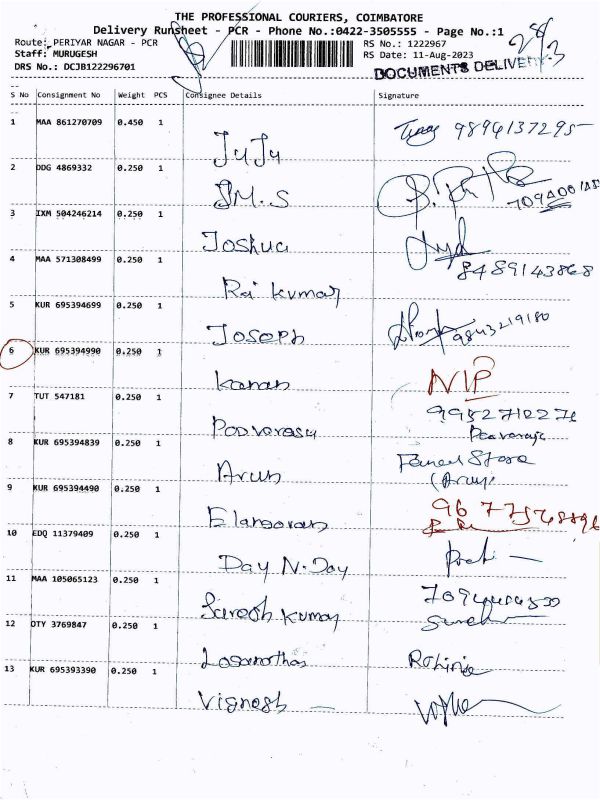 THE PROFESSIONAL COURIERS, COIMBATORE
Delivery Runsheet - PCR - Phone No.:0422-3505555 - Page No.:1
Route: PERIYAR NAGAR - PCR RS No.: 1222967
Staff: MURUGESH RS Date: 11-Aug-2023
DRS No.: DCJB122296701 DOCUMENTS DELIVERY
S No Consignment No Weight PCS Consignee Details Signature
1 MAA 861270709 0.450 1 JuJu 9894137295
2 DDG 4869332 0.250 1 JM.S
3 IXM 504246214 0.250 1 Joshua
4 MAA 571308499 0.250 1 Raj kumar 8489143868
5 KUR 695394699 0.250 1 Joseph 9843219180
6 KUR 695394990 0.250 1 kanan NIP
7 TUT 547181 0.250 1 Poovarasu 9952710276
8 KUR 695394839 0.250 1 Arun Store
9 KUR 695394490 0.250 1 Elangovan
10 EDQ 11379409 0.250 1 Day N-Day
11 MAA 105065123 0.250 1 Suresh kumar
12 OTY 3769847 0.250 1 Loganathan Rohini
13 KUR 695393390 0.250 1 Vignesh